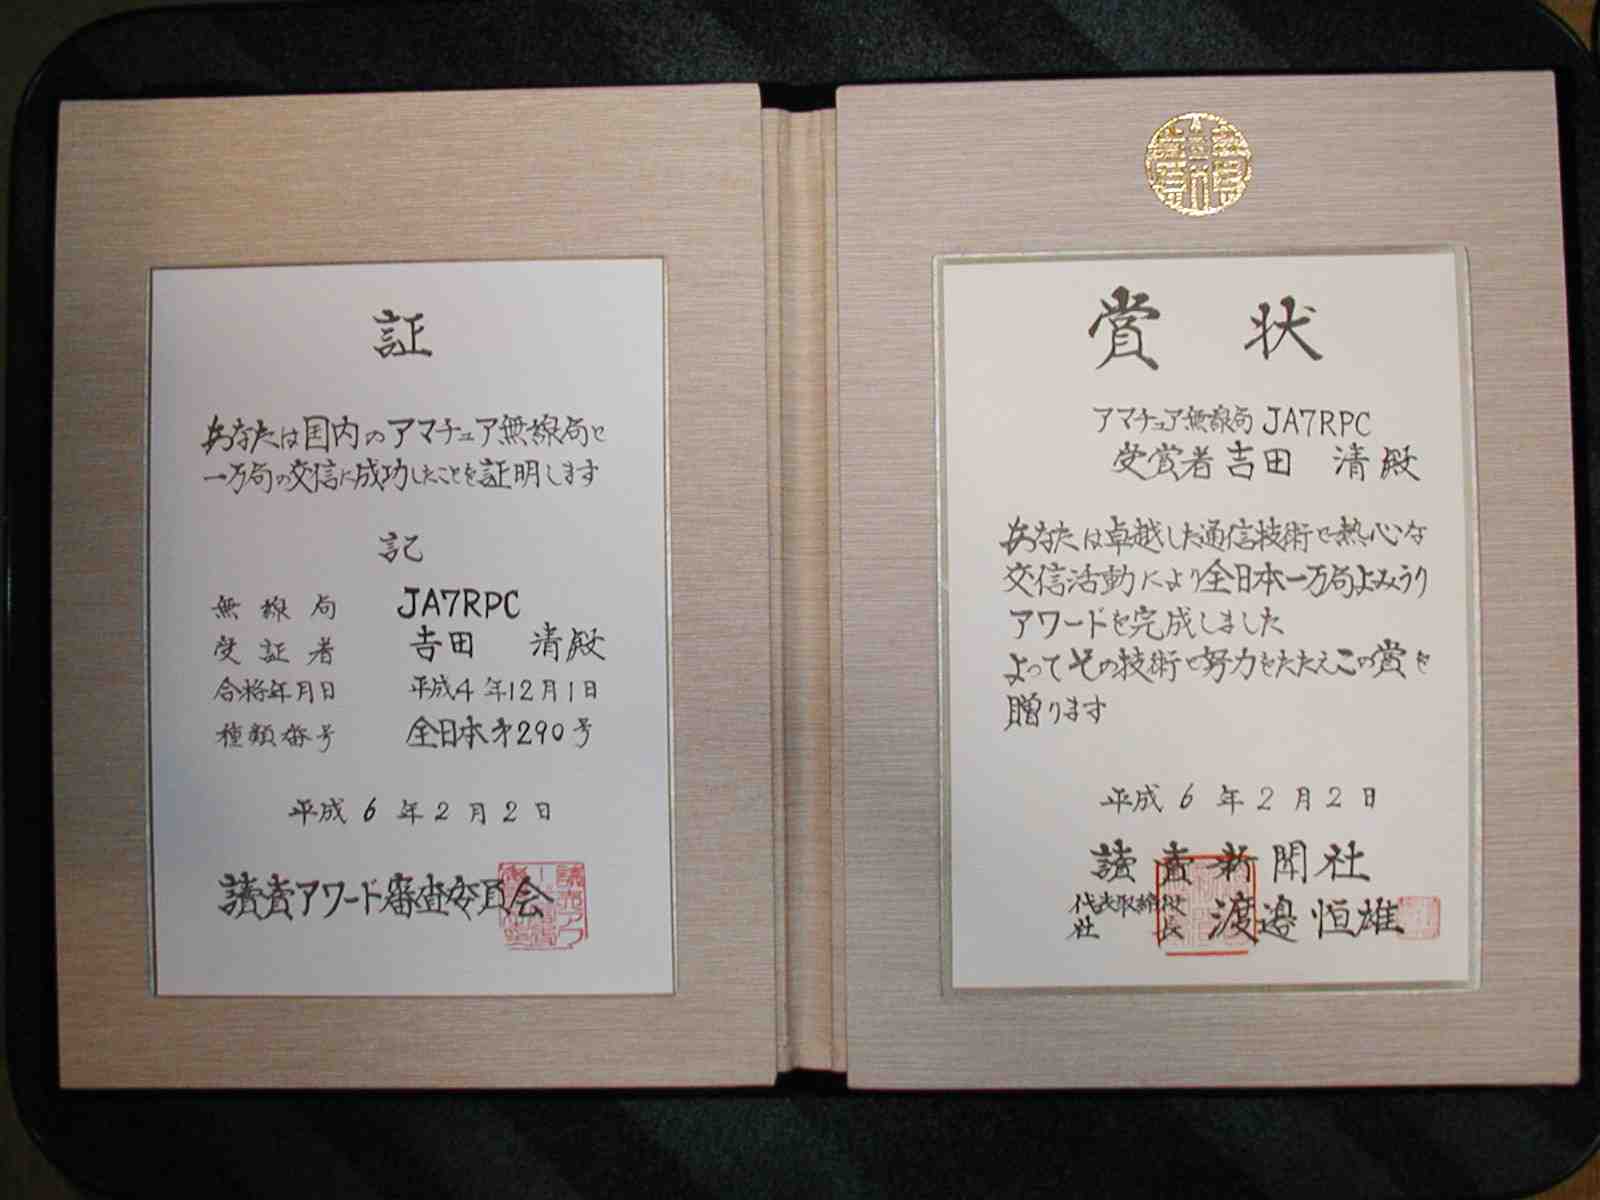 証
あなたは国内のアマチュア無線局と
一万局の交信に成功したことを証明します
記
無線局 JA7RPC
受証者 吉田 清殿
合格年月日 平成4年12月1日
種類番号 全日本才290号
平成6年2月2日
讀賣アワード審査委員会
賞状
アマチュア無線局 JA7RPC
受賞者 吉田 清殿
あなたは卓越した通信技術と熱心な
交信活動により全日本一万局よみうり
アワードを完成しました
よってその技術と努力をたたえこの賞を
贈ります
平成6年2月2日
讀賣新聞社
代表取締役
社長 渡邉恒雄